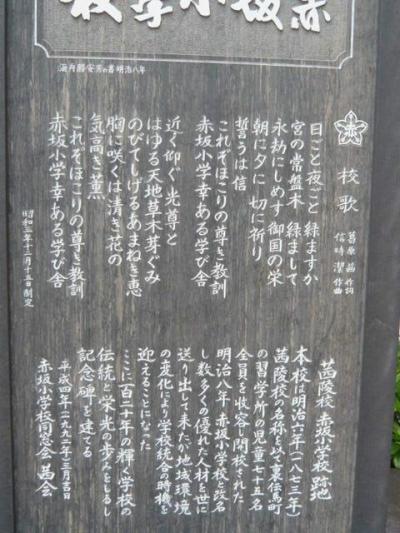 赤坂小学校
海舟勝安芳の書 明治八年
赤
校歌
葛原䈕 作詞
信時潔 作曲
日ごと夜ごと 緑ますか
宮の常盤木 緑まして
永劫にしめす 御国の栄
朝に夕に 切に祈り
誓うは信
これぞほこりの尊き教訓
赤坂小学 幸ある学び舎
近く仰ぐ 光尊と
はゆる天地 草木芽ぐみ
のびてしげる あまねき恵
胸に咲くは 清き花の
気高き薫
これぞほこりの尊き教訓
赤坂小学 幸ある学び舎
昭和三年十二月十五日制定
茜陵校 赤坂小学校 跡地
本校は明治六年(一八七三年)
茜陵校の名称を以て裏伝馬町
の習学所の児童七十五名
全員を收容 開校された
明治八年 赤坂小学校と改名
し数多くの優れた人材を世に
送り出して来たが地域環境
の変化により学校統合の時機を
迎えることになった
ここに百二十年の輝く学校の
伝統と栄光の歩みをしるし
記念碑を建てる
平成四年(一九九二年)三月吉日
赤坂小学校同窓会 茜会